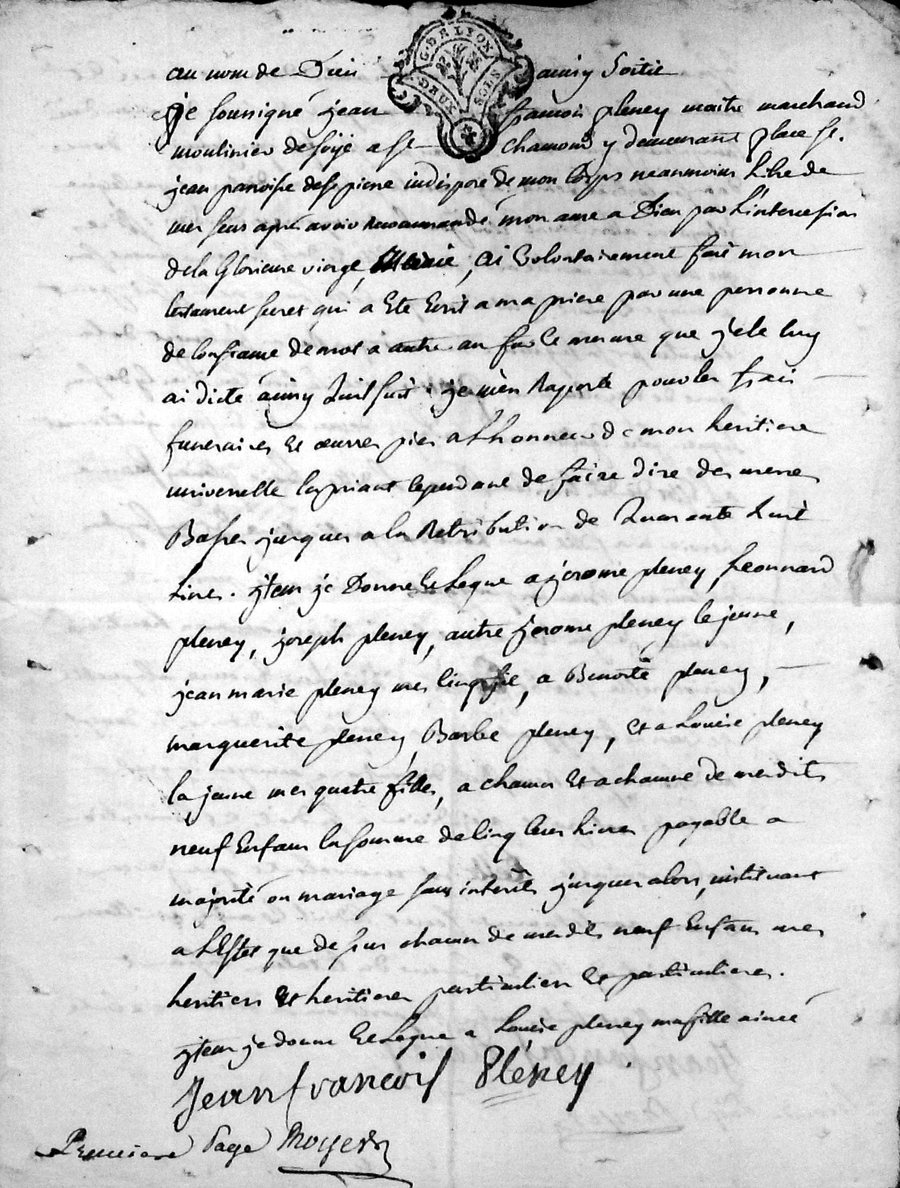 G. DE LYON
DEUX SOLS
au nom de Dieu ainsy soitil
je soussigné jean francois pleney maitre marchand
moulinier de soÿe a st chamond y demeurant place st.
jean paroisse de st pierre indisposé de mon corps neanmoins libre de
mes sens aprés avoir recommandé mon ame a Dieu par l'intercession
de la Glorieuse vierge Marie, ai volontairement fait mon
testament secret qui a Eté Ecrit a ma priere par une personne
de confiance de mot a autre au fur et mesure que je le luy
ai dicté ainsy quil suit. je m'en raporte pour les frais
funeraires et œuvres pies a l'honneur de mon heritiere
universelle la priant cependant de faire dire des messes
Basses jusques a la Retribution de Quarante huit
livres. jtem je Donne et Legue a jerome pleney, Leonnard
pleney, joseph pleney, autre jerome pleney le jeune,
jean marie pleney mes cinq fils, a Benoite pleney,
marguerite pleney, Barbe pleney, et a Louise pleney
la jeune mes quatre filles, a chacun et a chacune de mesdits
neuf Enfans la somme de cinq cens livres payable a
majorité ou mariage sans interêts jusques alors, instituant
a l'Effet que dessus chacun de mesdits neuf Enfans mes
heritiers et heritieres particuliers et particulieres.
jtem je donne et Legue a Louise pleney ma fille ainée
Jean francois Pléney
Premiere Page